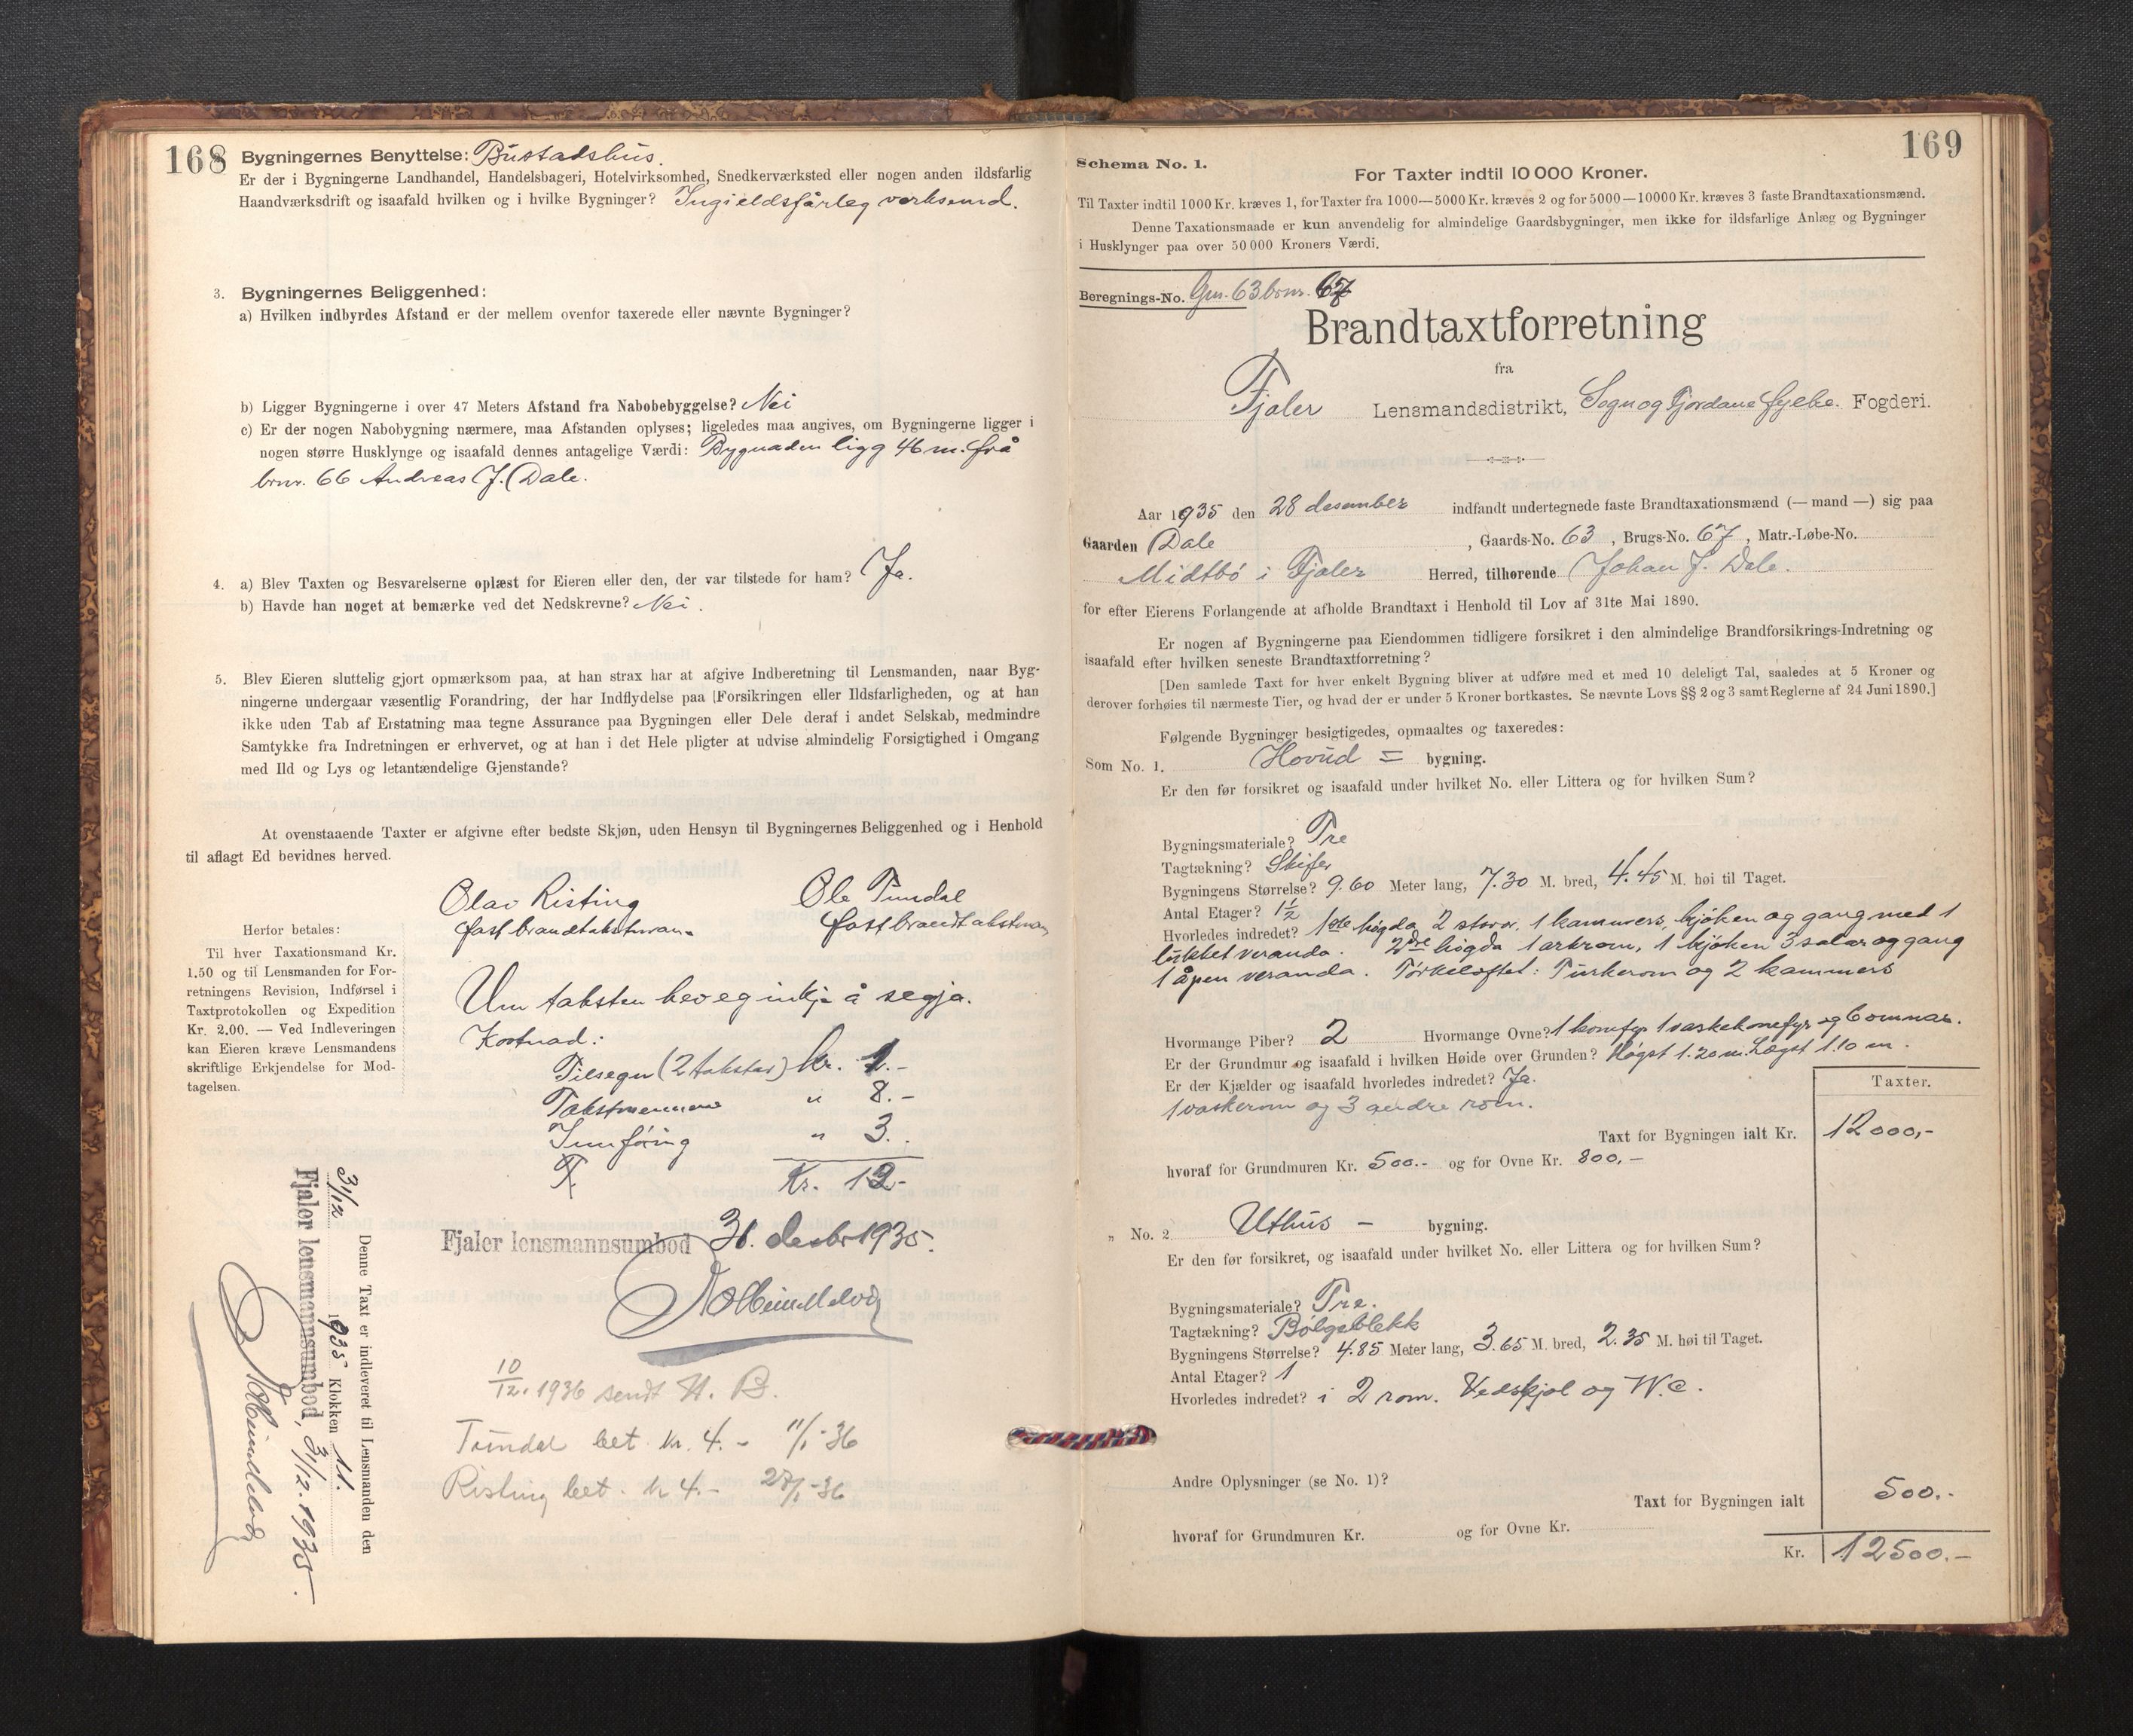 168
Bygningernes Benyttelse: Bustadshus.
Er der i Bygningerne Landhandel, Handelsbageri, Hotelvirksomhed, Snedkerværksted eller nogen anden ildsfarlig
Haandværksdrift og isaafald hvilken og i hvilke Bygninger? Ingi eldsfårleg verksemd.
3. Bygningernes Beliggenhed:
a) Hvilken indbyrdes Afstand er der mellem ovenfor taxerede eller nævnte Bygninger?
b) Ligger Bygningerne i over 47 Meters Afstand fra Nabobebyggelse? Nei
c) Er der nogen Nabobygning nærmere, maa Afstanden oplyses; ligeledes maa angives, om Bygningerne ligger i
nogen større Husklynge og isaafald dennes antagelige Værdi: Bygnaden ligg 46 m. frå
brnr. 66 Andreas J. Dale.
4. a) Blev Taxten og Besvarelserne oplæst for Eieren eller den, der var tilstede for ham? Ja.
b) Havde han noget at bemærke ved det Nedskrevne? Nei.
5. Blev Eieren sluttelig gjort opmærksom paa, at han strax har at afgive Indberetning til Lensmanden, naar Byg-
ningerne undergaar væsentlig Forandring, der har Indflydelse paa Forsikringen eller Ildsfarligheden, og at han
ikke uden Tab af Erstatning maa tegne Assurance paa Bygningen eller Dele deraf i andet Selskab, medmindre
Samtykke fra Indretningen er erhvervet, og at han i det Hele pligter at udvise almindelig Forsigtighed i Omgang
med Ild og Lys og letantændelige Gjenstande?
At ovenstaaende Taxter er afgivne efter bedste Skjøn, uden Hensyn til Bygningernes Beliggenhed og i Henhold
til aflagt Ed bevidnes herved.
Olav Risting Ole Tundal
fast brandtakstman. fast brandtakstman
Herfor betales:
Til hver Taxationsmand Kr.
1.50 og til Lensmanden for For-
retningens Revision, Indførsel i
Taxtprotokollen og Expedition
Kr. 2.00. — Ved Indleveringen
kan Eieren kræve Lensmandens
skriftlige Erkjendelse for Mod-
tagelsen.
Um taksten hev eg inkje å segja.
Kostnad:
Tilsegn (2 takstar) Kr. 1.-
Takstmennene " 8.-
Innføring " 3.
Kr. 12.-
Fjaler lensmannsumbod 31. desbr 1935.
10/12. 1936 sendt H. B.
Tundal bet. kr. 4.- 11/1-36
Risting bet. kr 4.- 27/1-36
Denne Taxt er indleveret til Lensmanden den
31/12 1935 Klokken 11.
Fjaler lensmannsumbod, 31/12. 1935.
169
Schema No. 1.
For Taxter indtil 10 000 Kroner.
Til Taxter indtil 1000 Kr. kræves 1, for Taxter fra 1000—5000 Kr. kræves 2 og for 5000—10000 Kr. kræves 3 faste Brandtaxationsmænd.
Denne Taxationsmaade er kun anvendelig for almindelige Gaardsbygninger, men ikke for ildsfarlige Anlæg og Bygninger
i Husklynger paa over 50 000 Kroners Værdi.
Beregnings-No. Gnr. 63 brnr. 67
Brandtaxtforretning
fra
Fjaler Lensmandsdistrikt, Sogn og Fjordane fylke. Fogderi.
Aar 1935 den 28 desember indfandt undertegnede faste Brandtaxationsmænd (— mand —) sig paa
Gaarden Dale, Gaards-No. 63, Brugs-No. 67, Matr.-Løbe-No.
Midtbø i Fjaler Herred, tilhørende Johan J. Dale.
for efter Eierens Forlangende at afholde Brandtaxt i Henhold til Lov af 31te Mai 1890.
Er nogen af Bygningerne paa Eiendommen tidligere forsikret i den almindelige Brandforsikrings-Indretning og
isaafald efter hvilken seneste Brandtaxtforretning?
[Den samlede Taxt for hver enkelt Bygning bliver at udføre med et med 10 deleligt Tal, saaledes at 5 Kroner og
derover forhøies til nærmeste Tier, og hvad der er under 5 Kroner bortkastes. Se nævnte Lovs §§ 2 og 3 samt Reglerne af 24 Juni 1890.]
Følgende Bygninger besigtigedes, opmaaltes og taxeredes:
Som No. 1. Hovud = bygning.
Er den før forsikret og isaafald under hvilket No. eller Littera og for hvilken Sum?
Bygningsmateriale? Tre
Tagtækning? Skifer
Bygningens Størrelse? 9.60 Meter lang, 7.30 M. bred, 4.45 M. høi til Taget.
Antal Etager? 1 1/2
Hvorledes indrettet? 1ste høgda 2 stovor, 1 kammers, kjøken og gang med 1
lukket veranda. 2dre høgda 1 arkrom, 1 kjøken 3 salar og gang
1 åpen veranda. Tørkeloftet: Turkerom og 2 kammers
Hvormange Piber? 2 Hvormange Ovne? 1 komfyr 1 vaskekonefyr og 6 omnar.
Er der Grundmur og isaafald i hvilken Høide over Grunden? Høgst 1.20 m. Lægst 1.10 m.
Er der Kjælder og isaafald hvorledes indredet? Ja.
1 vaskerom og 3 andre rom.
Taxter.
Taxt for Bygningen ialt Kr. 12000,-
hvoraf for Grundmuren Kr. 500.- og for Ovne Kr. 800,-
„ No. 2 Uthus - bygning.
Er den før forsikret, og isaafald under hvilket No. eller Littera og for hvilken Sum?
Bygningsmateriale? Tre.
Tagtækning? Bølgeblekk
Bygningens Størrelse? 4.85 Meter lang, 3.65 M. bred, 2.35 M. høi til Taget.
Antal Etager? 1
Hvorledes indredet? i 2 rom. Vedskjol og W.C.
Andre Oplysninger (se No. 1)?
Taxt for Bygningen ialt 500.-
hvoraf for Grundmuren Kr. og for Ovne Kr.
Kr. 12500.-